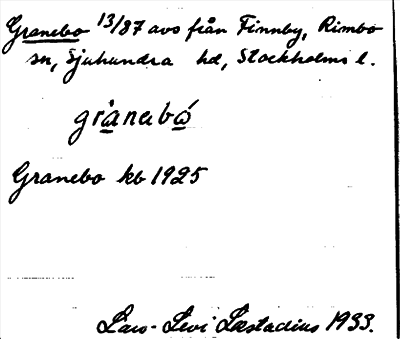 Granebo 13/87 avs från Finnby, Rimbo
sn, Sjuhundra hd, Stockholms l.
grånabó
Granebo kb 1925
Lars-Levi Læstadius 1933.